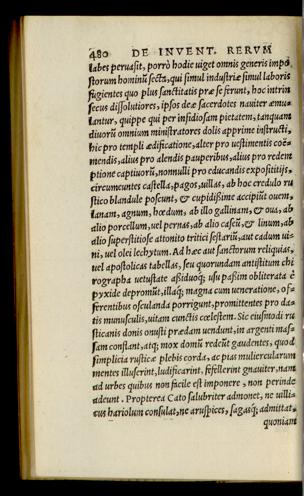 480 DE INVENT. RERVM
labes peruasit, porrò hodie uiget omnis generis impo
storum hominũ secta, qui simul industriæ simul laboris
fugientes quo plus sanctitatis præ se ferunt, hoc intrin
secus dissolutiores, ipsos deæ sacerdotes nauiter æmu-
lantur, quippe qui per insidiosam pietatem, tanquam
diuorũ omnium ministratores dolis apprime instructi,
hic pro templi ædificatione, alter pro uestimentis coë-
mendis, alius pro alendis pauperibus, alius pro redem
ptione captiuorũ, nonnulli pro educandis expositijs,
circumeuntes castella, pagos, uillas, ab hoc credulo ru
stico blandule poscunt, & cupidißime accipiũt ouem,
lanam, agnum, hœdum, ab illo gallinam, & oua, ab
alio porcellum, uel pernas, ab alio caseũ, & linum, ab
alio superstitiose attonito tritici sextariũ, aut cadum ui-
ni, uel olei lechytum. Ad hæc aut sanctorum reliquias,
uel apostolicas tabellas, seu quorundam antistitum chi
rographa uetustate aßiduoq́; usu paßim obliterata è
pyxide depromũt, illaq́; magna cum ueneratione, of-
ferentibus osculanda porrigunt, promittentes pro da-
tis munusculis, uitam cunctis cœlestem. Sic eiusmodi ru
sticanis donis onusti prædam uendunt, in argenti mas-
sam constant, atq; mox domũ redeũt gaudentes, quod
simplicia rusticæ plebis corda, ac pias muliercularum
mentes illuserint, ludificarint, fefellerint gnauiter, nam
ad urbes quibus non facile est imponere, non perinde
adeunt. Propterea Cato salubriter admonet, ne uilli-
cus hariolum consulat, ne aruspices, sagasq́; admittat,
quoniam